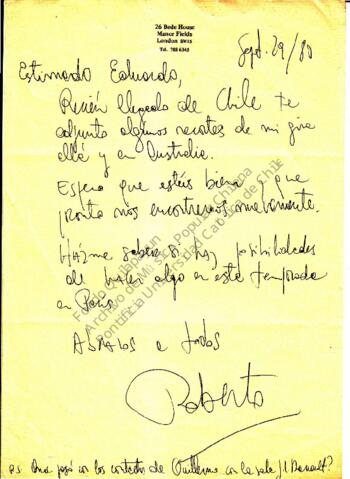 26 Bede House
Manor Fields
London SW15
Tel. 788 6345
Sept. 29/80
Estimado Eduardo,
Recién llegado de Chile te
adjunto algunos recortes de mi gira
allá y en Australia.
Espero que estés bien y que
pronto nos encontremos nuevamente.
Házme saber si hay posibilidades
de hacer algo en esta temporada
en París.
Abrazos a todos
Roberto
P.S. Que pasó con los contactos de Guillermo con la sala J.L. Barrault?
Fondo Quilapayún
Archivo de Música Popular Chilena
Pontificia Universidad Católica de Chile